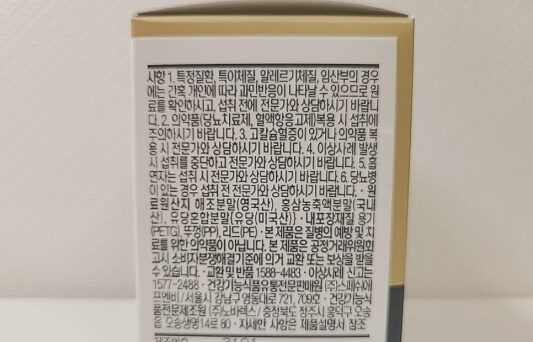 사항 1. 특정질환, 특이체질, 알레르기체질, 임산부의 경우
에는 간혹 개인에 따라 과민반응이 나타날 수 있으므로 원
료를 확인하시고, 섭취 전에 전문가와 상담하시기 바랍니
다. 2. 의약품(당뇨치료제, 혈액항응고제)복용 시 섭취에
주의하시기 바랍니다. 3. 고칼슘혈증이 있거나 의약품 복
용 시 전문가와 상담하시기 바랍니다. 4. 이상사례 발생
시 섭취를 중단하고 전문가와 상담하시기 바랍니다. 5. 흡
연자는 섭취시 전문가와 상담하시기 바랍니다. 6. 당뇨병
이 있는 경우 섭취 전 전문가와 상담하시기 바랍니다. · 원
료원산지 해조분말(영국산), 홍삼농축액분말(국내
산), 유당혼합분말{유당(미국산)} · 내포장재질 용기
(PETG), 뚜껑(PP), 리드(PE) · 본 제품은 질병의 예방 및 치
료를 위한 의약품이 아닙니다. 본 제품은 공정거래위원회
고시 소비자분쟁해결기준에 의거 교환 또는 보상을 받을
수 있습니다. · 교환 및 반품 1588-4483 · 이상사례 신고는
1577-2488 · 건강기능식품유통전문판매원 (주)스페쉬에
프엔비/서울시 강남구 영동대로 721, 709호 · 건강기능식
품전문제조원 (주)노바렉스/충청북도 청주시 흥덕구 오송
읍 오송생명14로 80 · 자세한 사항은 제품설명서 참조